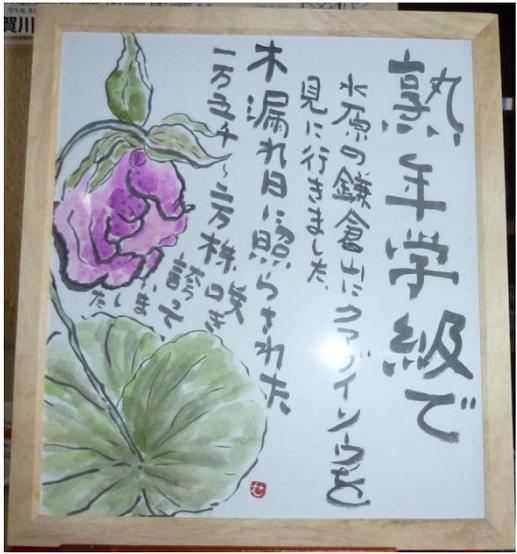 熟年学級で
水原の鎌倉山にクマガイソウを
見に行きました
木漏れ日に照らされた
一万五千~二万株咲き
誇って
いま
した
賀川